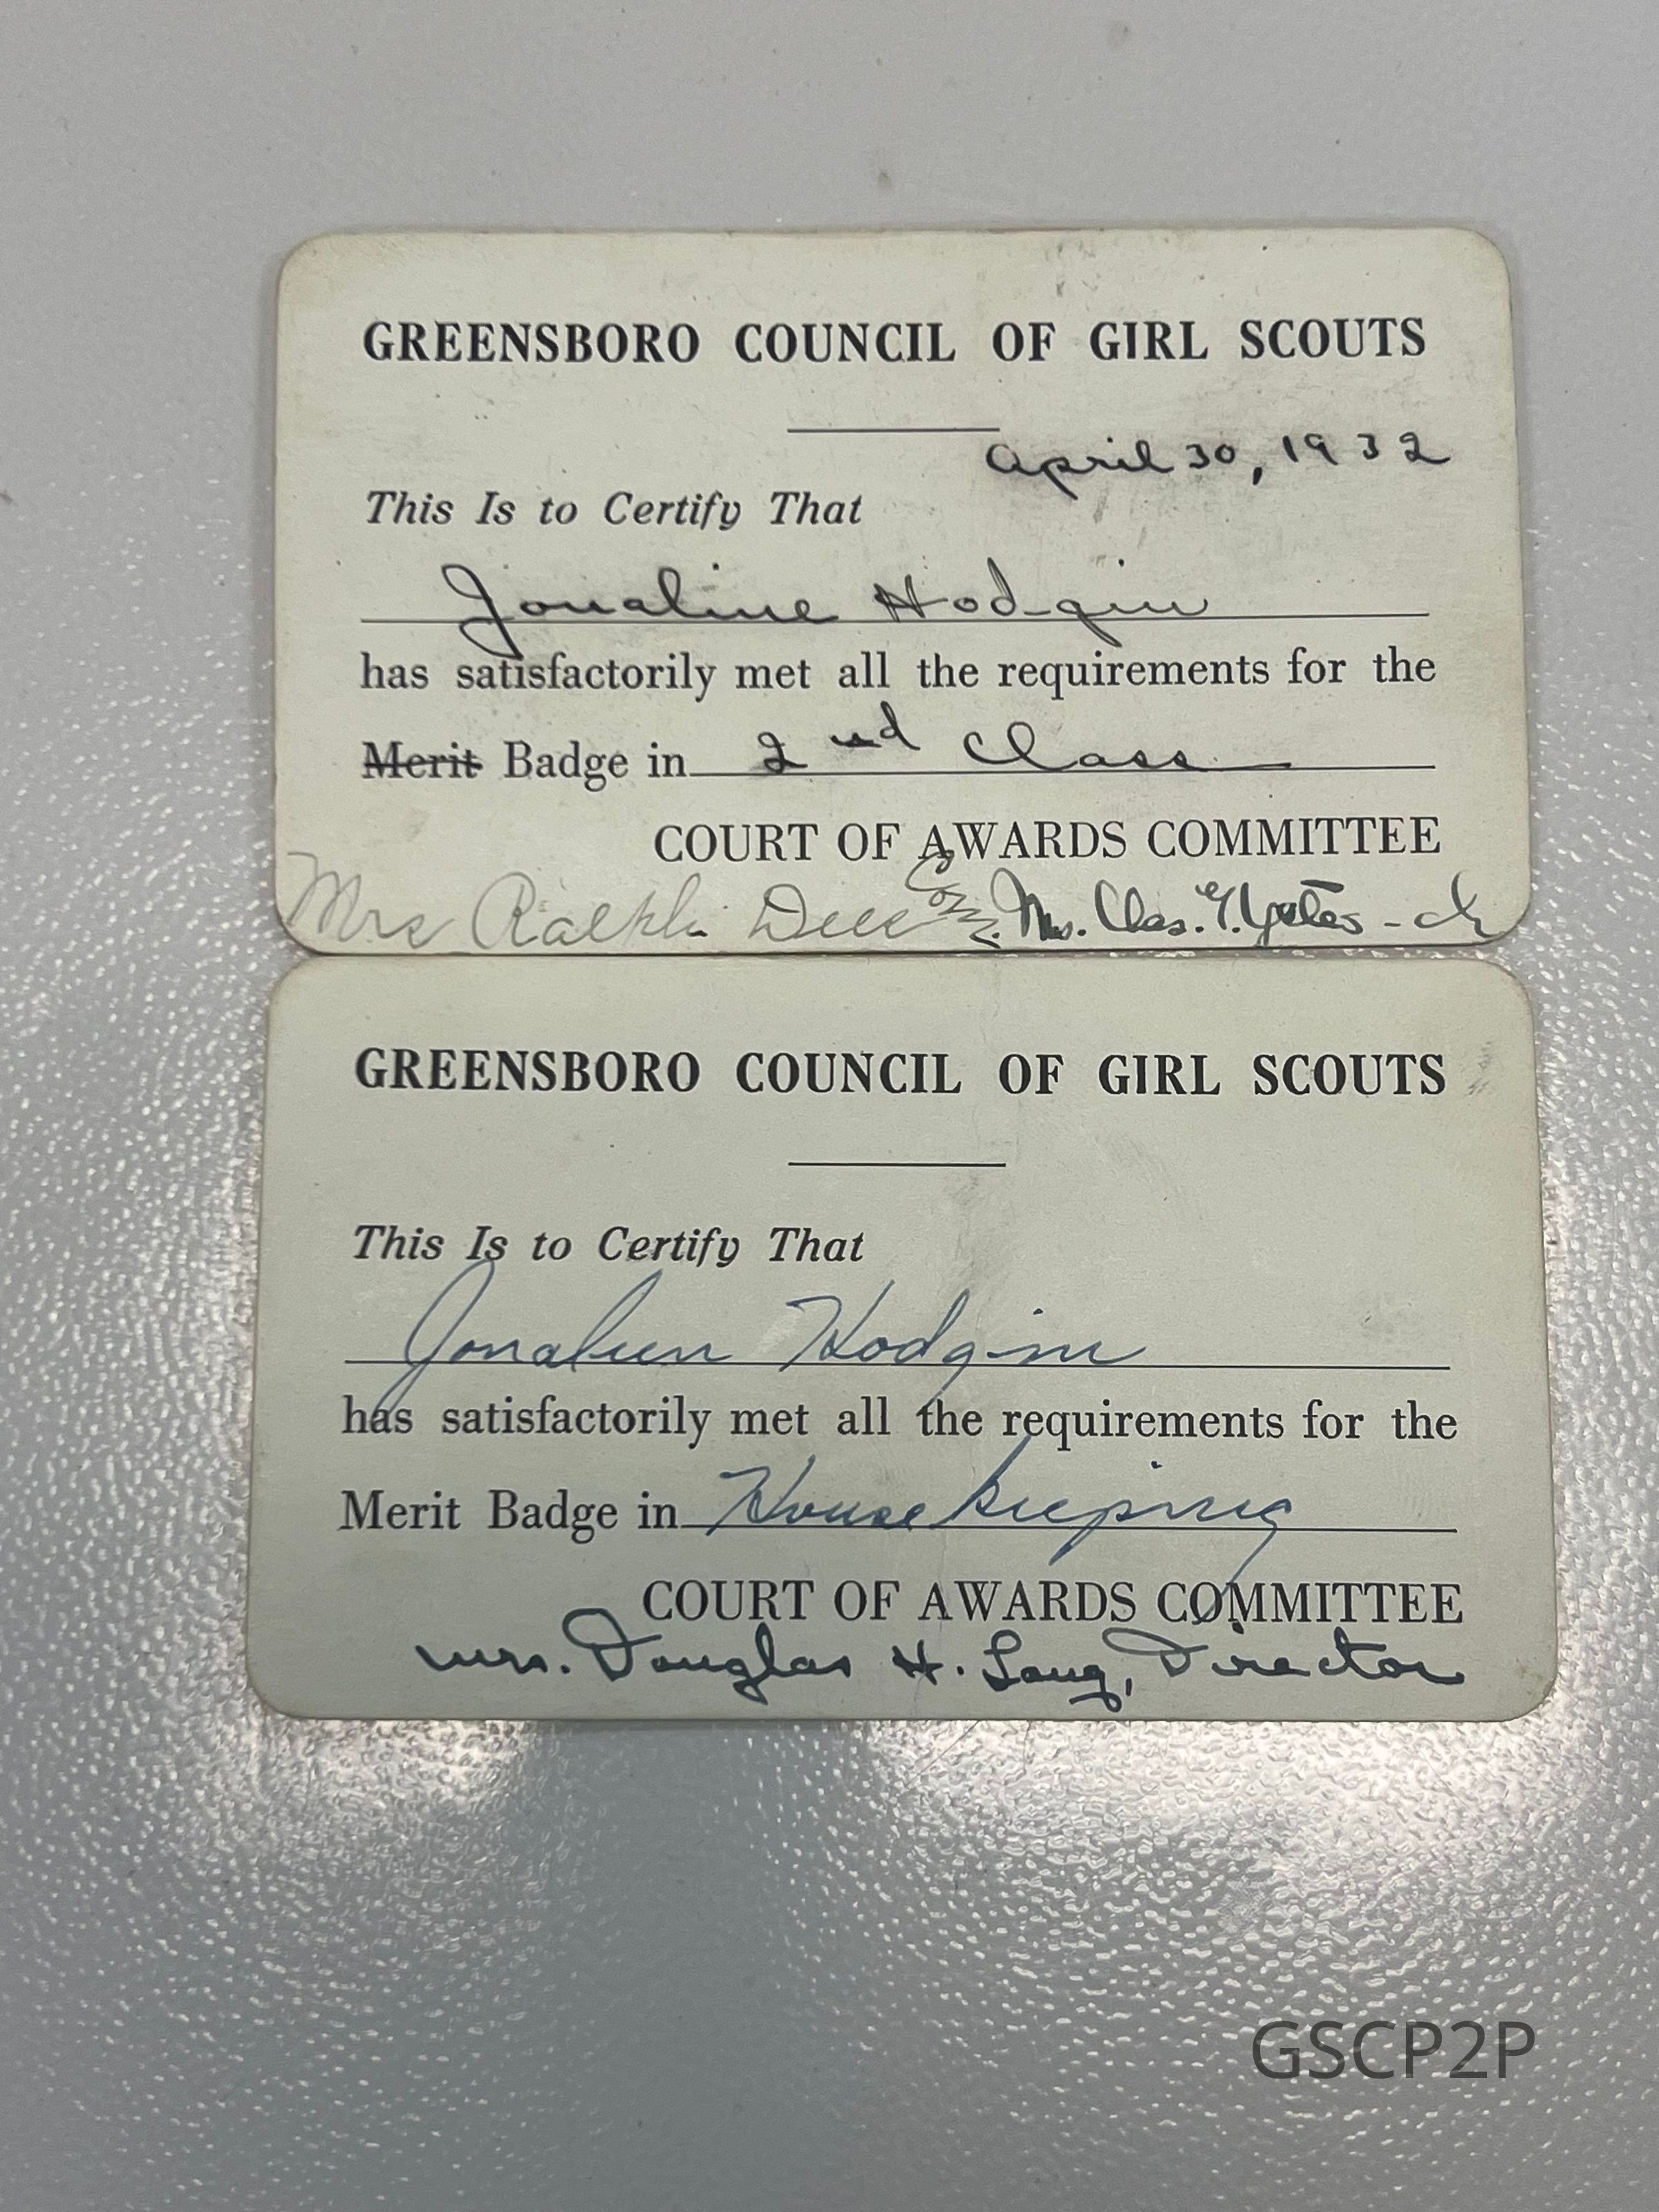 GREENSBORO COUNCIL OF GIRL SCOUTS
April 30, 1932
This Is to Certify That
Jonaline Hodgin
has satisfactorily met all the requirements for the
Merit Badge in 2nd Class
COURT OF AWARDS COMMITTEE
Mrs Ralph Com. Mrs. Chas. Yates - ch
GREENSBORO COUNCIL OF GIRL SCOUTS
This Is to Certify That
Hodgin
has satisfactorily met all the requirements for the
Merit Badge in House keeping
COURT OF AWARDS COMMITTEE
Mrs. Douglas H. Long, Director
GSCP2P